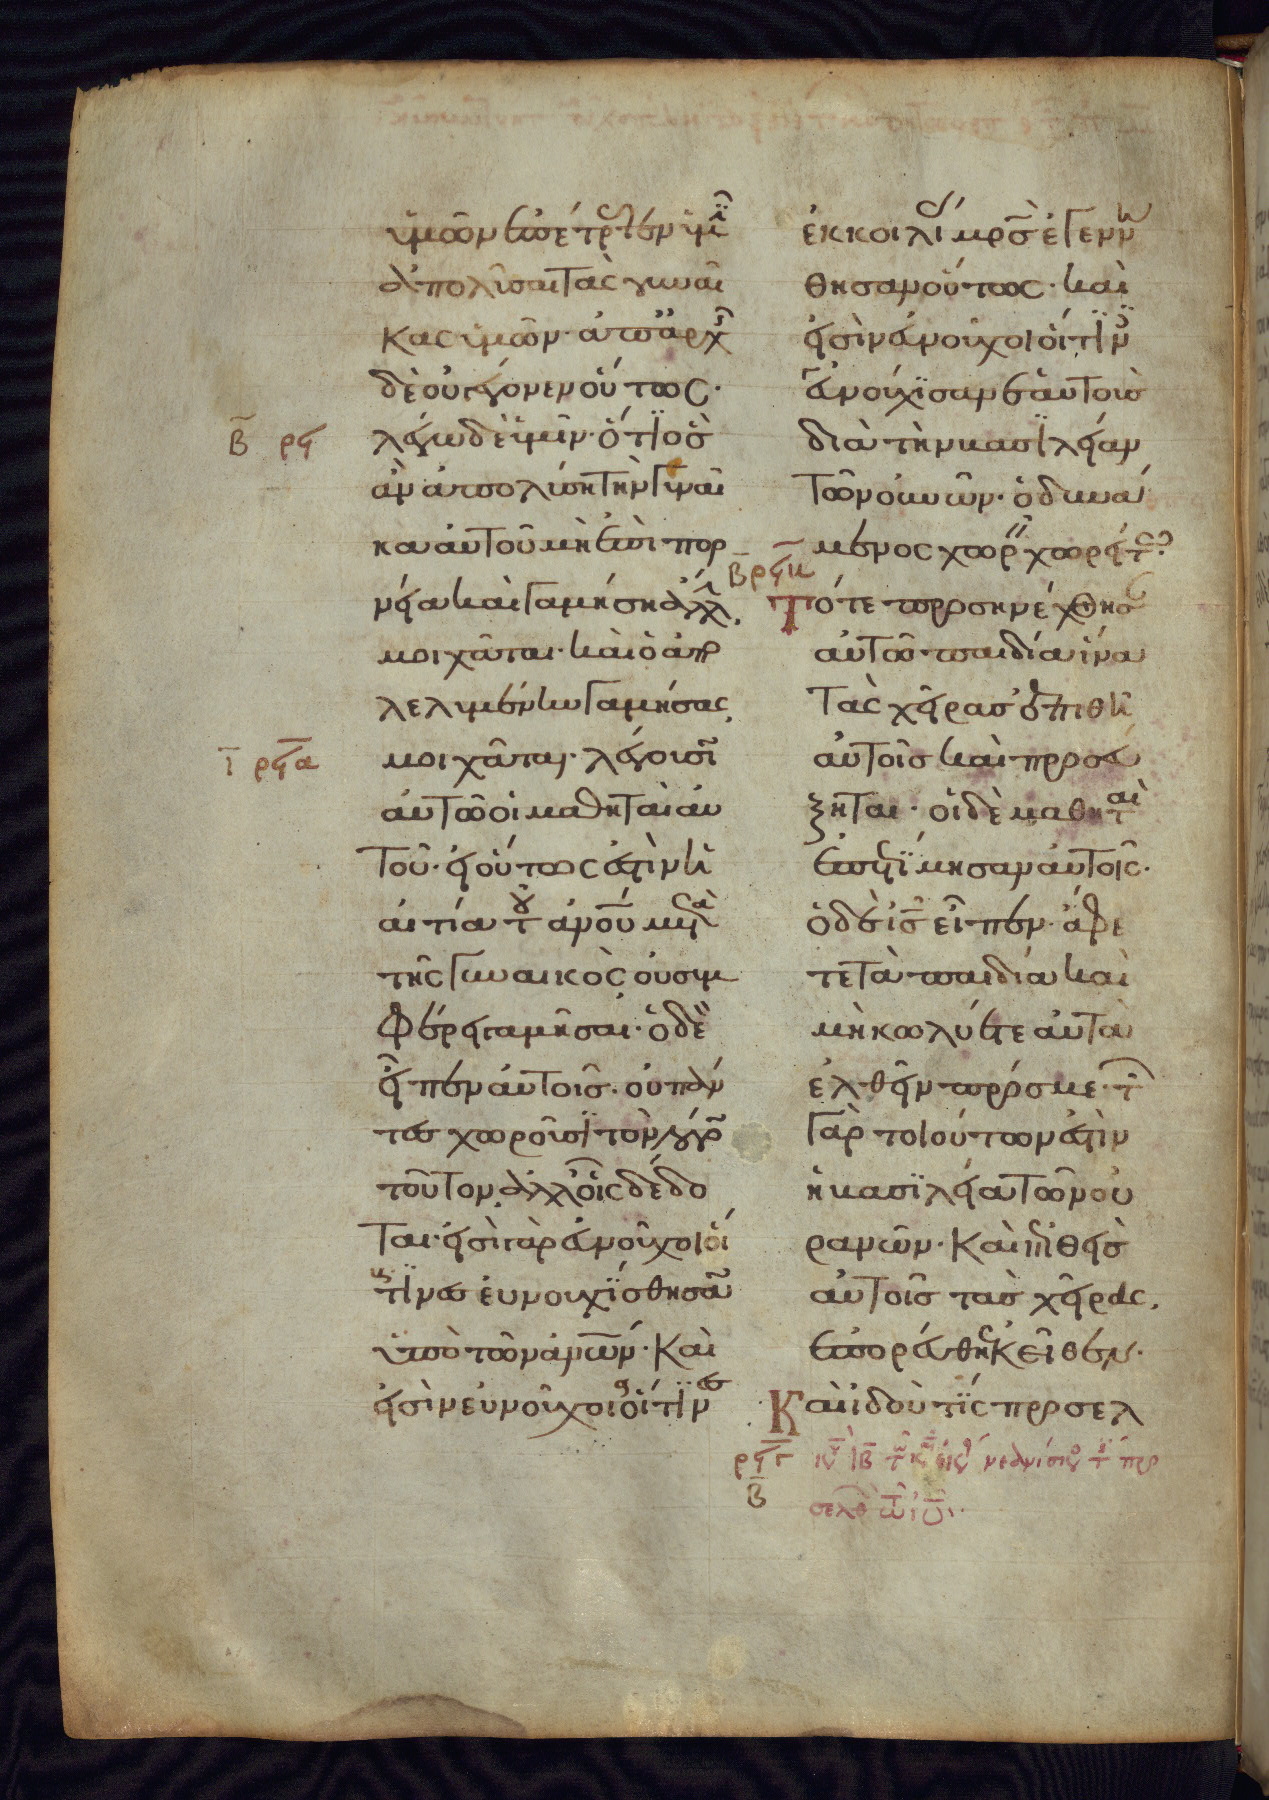 ὑμῶν ἐπέτρεψεν ὑμῖν
ἀπολῦσαι τὰς γυναῖ
κας ὑμῶν· ἀπ' ἀρχῆς
δὲ οὐ γέγονεν οὕτως·
β ρϟ λέγω δὲ ὑμῖν· ὅτι ὃς
ἂν ἀπολύσῃ τὴν γυναῖ
κα αὐτοῦ μὴ ἐπὶ πορ
νεία καὶ γαμήσῃ ἄλλην,
μοιχᾶται· καὶ ὁ ἀπο
λελυμένην γαμήσας,
ι ρϟα μοιχᾶται· λέγουσιν
αὐτῶ οἱ μαθηταὶ αὐ
τοῦ· εἰ οὕτως ἐστὶν ἡ
αἰτία τοῦ ἀνου μετὰ
τῆς γυναικὸς οὐ συμ
φέρει γαμῆσαι· ὁ δὲ
εἶπεν αὐτοῖς· οὐ πάν
τες χωροῦσι τὸν λόγον
τοῦτον, ἀλλ' οἷς δέδο
ται· εἰσὶ γὰρ εὐνοῦχοι οἵ
τινες εὐνουχίσθησαν
ὑπὸ τῶν ἀνων· Καὶ
εἰσὶν εὐνοῦχοι οἵτινες
ἐκ κοιλίας μρς ἐγεννή
θησαν οὕτως· καὶ
εἰσὶν εὐνοῦχοι οἵτινες
εὐνούχισαν ἑαυτοὺς
διὰ τὴν βασιλείαν
τῶν οὐνων· ὁ δυνά
μενος χωρεῖν χωρείτω
β ρϟβ
Τότε προσηνέχθησαν
αὐτῶ παιδία ἵνα
τὰς χεῖρας ἐπιθῆ
αὐτοῖς καὶ προσεύ
ξηται· οἱ δὲ μαθηταὶ
ἐπετίμησαν αὐτοῖς·
ὁ δὲ ις εἶπεν· ἄφε
τε τὰ παιδία καὶ
μὴ κωλύετε αὐτὰ
ἐλθεῖν πρός με· τῶν
γὰρ τοιούτων ἐστὶν
ἡ βασιλεία τῶν οὐ
ρανῶν· Καὶ ἐπιθεὶς
αὐτοῖς τὰς χεῖρας,
ἐπορεύθη ἐκεῖθεν·
Καὶ ἰδοὺ τίς προσελ
ρϟγ
β